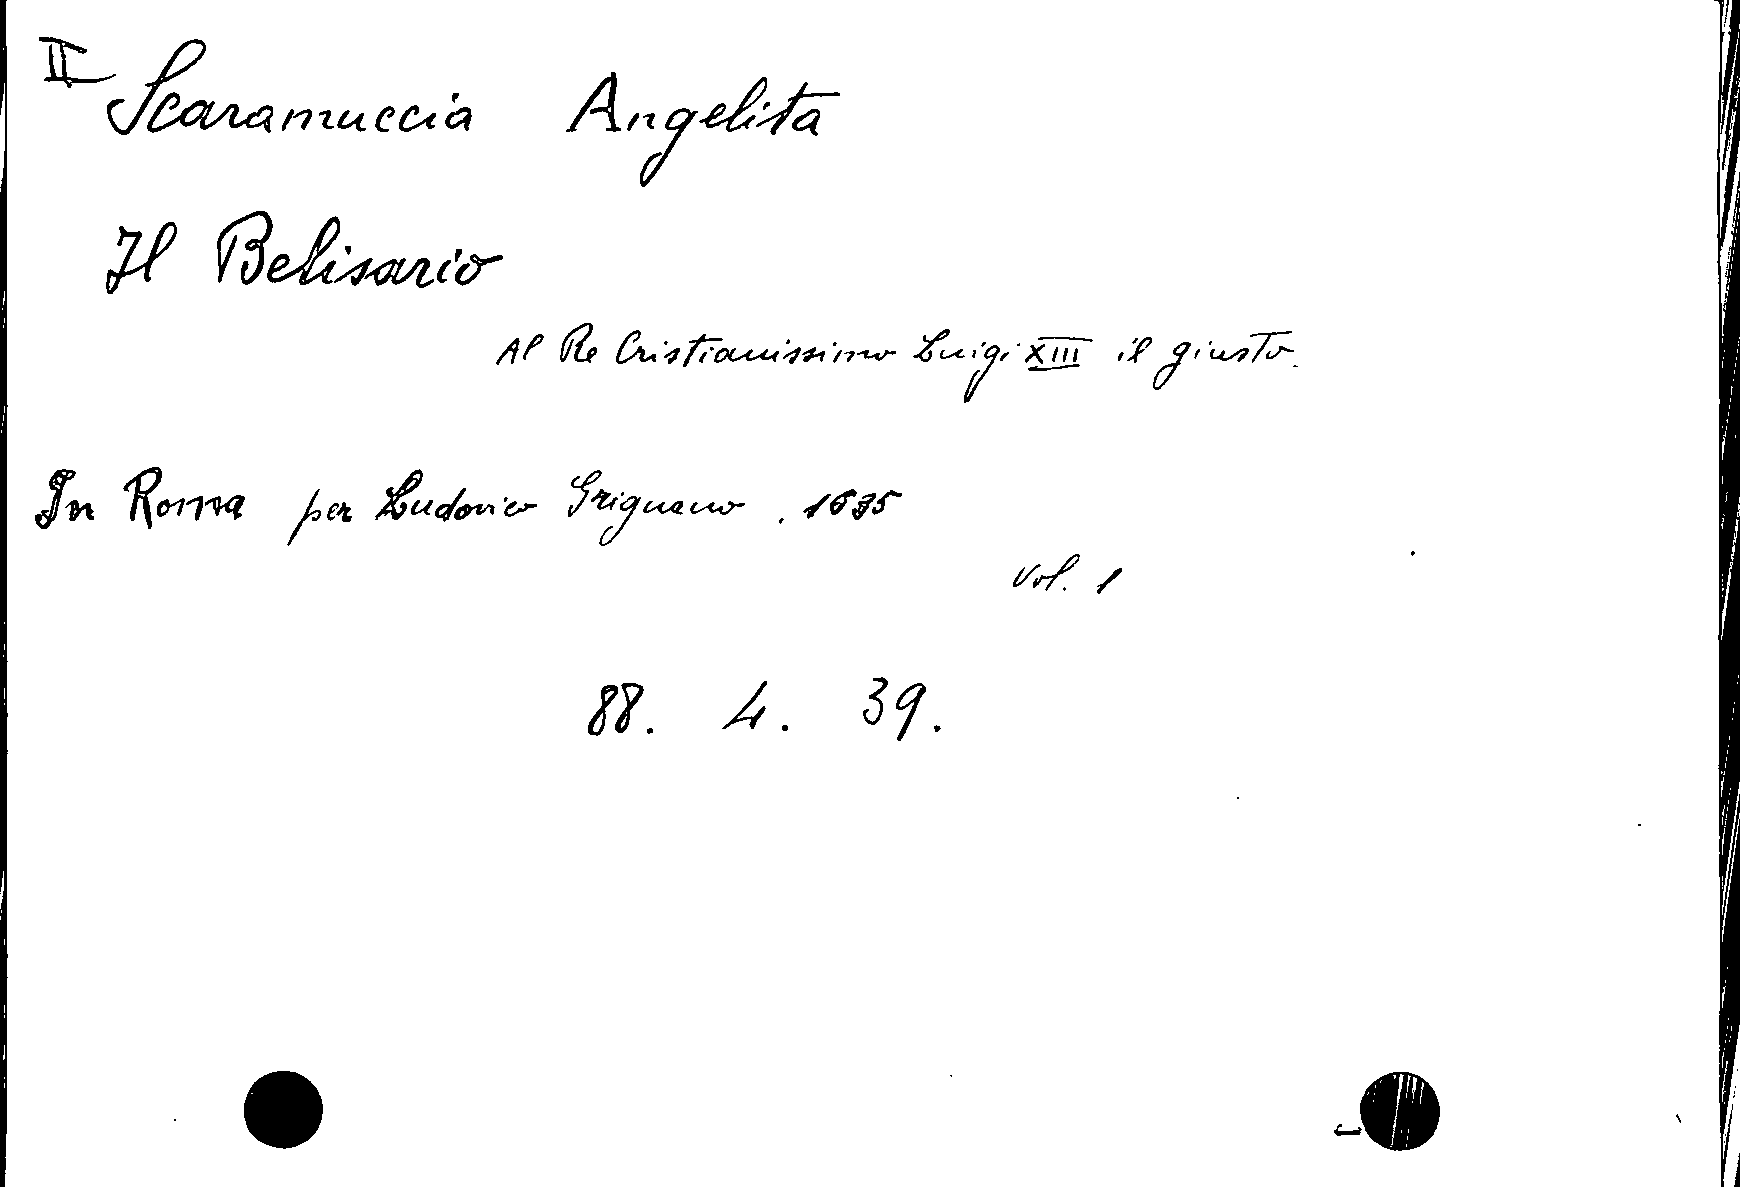 II
Scaramuccia Angelita
Il Belisario
Al Re Cristianissimo Luigi XIII il giusto.
In Roma per Ludovico Grignano . 1635
Vol. 1
88. 4. 39.